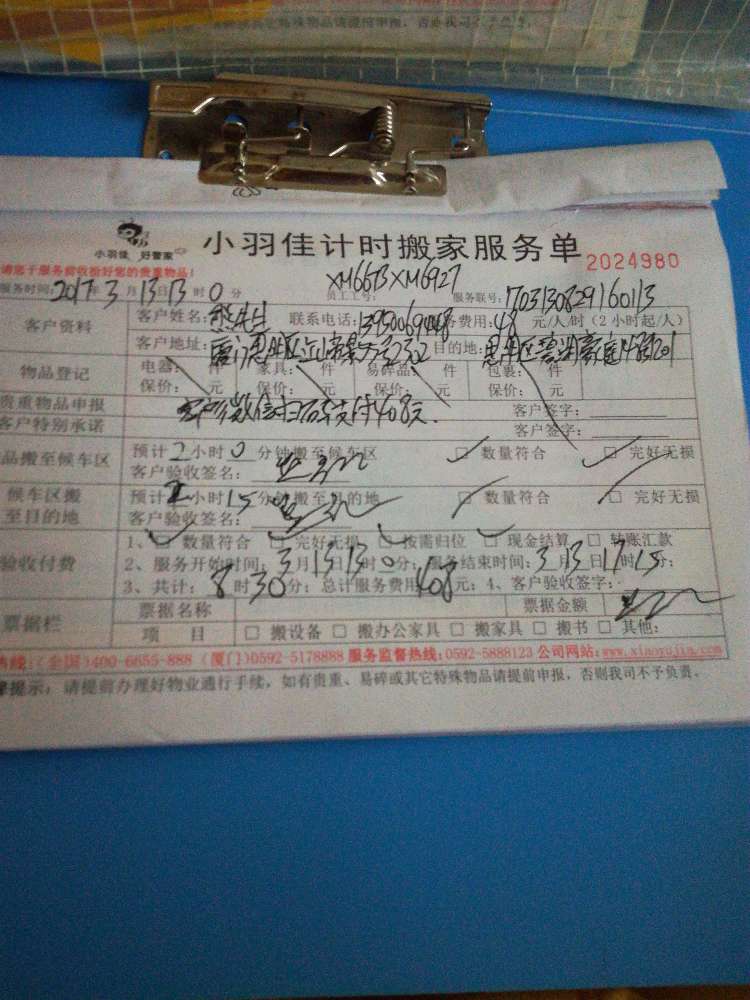 小羽佳 好管家
小羽佳计时搬家服务单
2024980
请您于服务前收拾好您的贵重物品！
XM6673XM6927
服务时间：2017年3月13日13时0分 员工工号： 服务联号：
客户资料
客户姓名： 先生 联系电话：13950069448 服务费用：48元/人/时（2小时起/人）
客户地址：厦门思明区 目的地：思明区
物品登记
电器： 件 家具： 件 易碎品 件 包裹： 件
保价： 元 保价： 元 保价： 元 保价： 元
贵重物品申报 客户微信扫码支付408元. 客户签字：
客户特别承诺 客户签字：
品搬至候车区
预计2小时0分钟搬至候车区 □ 数量符合 □ 完好无损
客户验收签名：
候车区搬至目的地
预计2小时15分钟搬至目的地 □ 数量符合 □ 完好无损
客户验收签名：
验收付费
1、□ 数量符合 □ 完好无损 □ 按需归位 □ 现金结算 □ 转账汇款
2、服务开始时间：3月13日13时0分；服务结束时间：3月13日17时15分；
3、共计：8时30分；总计服务费用：408元；4、客户验收签字：
票据栏
票据名称 票据金额
项 目 □ 搬设备 □ 搬办公家具 □ 搬家具 □ 搬书 □ 其他：
热线：（全国）400-6655-888（厦门）0592-5178888 服务监督热线：0592-5888123 公司网站：www.xiaoyujia.com
提示：请提前办理好物业通行手续，如有贵重、易碎或其它特殊物品请提前申报，否则我司不予负责。